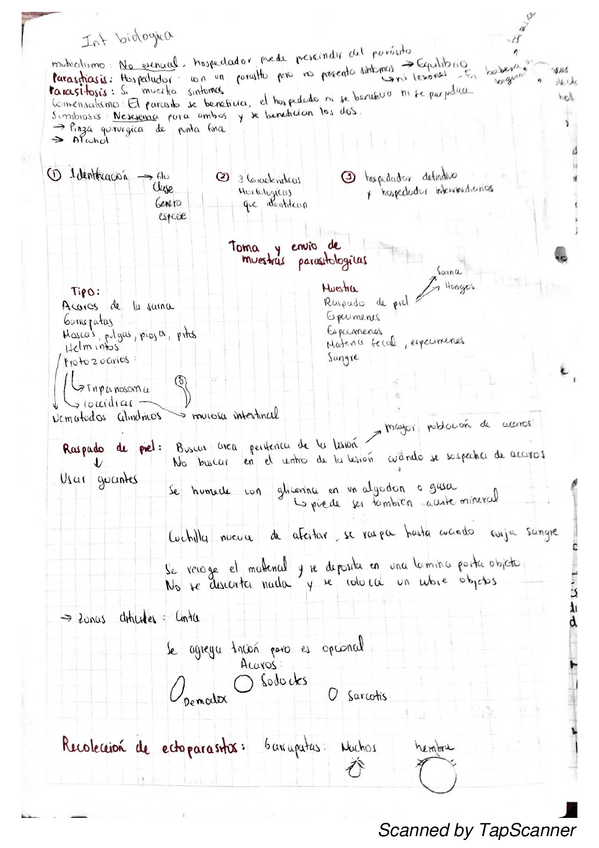 Int biologica
mutualismo: No esencial, hospedador puede prescindir del parásito
Parasitiasis: Hospedador con un parasito pero no presenta sintomas → Equilibrio
↳ ni lesiones
Parasitosis: Si muestra sintomas
Comensalismo: El parasito se beneficia, el hospedado ni se beneficia ni se perjudica
Simbiosis: Necesaria para ambos y se benefician los dos.
→ Pinza quirurgica de punta fina
→ Alcohol
① Identificación → Filo
Clase
Genero
especie
② 3 Caracteristicas
Morfologicas
que identifican
③ hospedador definitivo
y hospedador intermediarios
Toma y envio de
muestras parasitologicas
Tipo:
Acaros de la sarna
Garrapatas
Moscas, pulgas, piojos, pitos
Helmintos
Protozoarios:
↳ Tripanosoma
↳ coccidias
Nematodos cilindricos → mucosa intestinal
Muestra
Raspado de piel
Sarna
Hongos
Especimenes
Especimenes
Materia fecal, especimenes
Sangre
Raspado de piel: Buscar area periferica de la lesión → mayor población de acaros
No buscar en el centro de la lesión cuándo se sospecha de acaros
↓
Usar guantes
Se humede con glicerina en un algodon o gasa
↳ puede ser tambien aceite mineral
Cuchilla nueva de afeitar, se raspa hasta cuando surja sangre
Se recoge el material y se deposita en una lamina porta objeto
No se descarta nada y se coloca un cubre objetos
→ Zonas dificiles: Cinta
Se agrega tinción pero es opcional
Acaros:
Demodex
Sarcotis
Recolección de ectoparasitos: Garrapatas: Machos hembra
Scanned by TapScanner